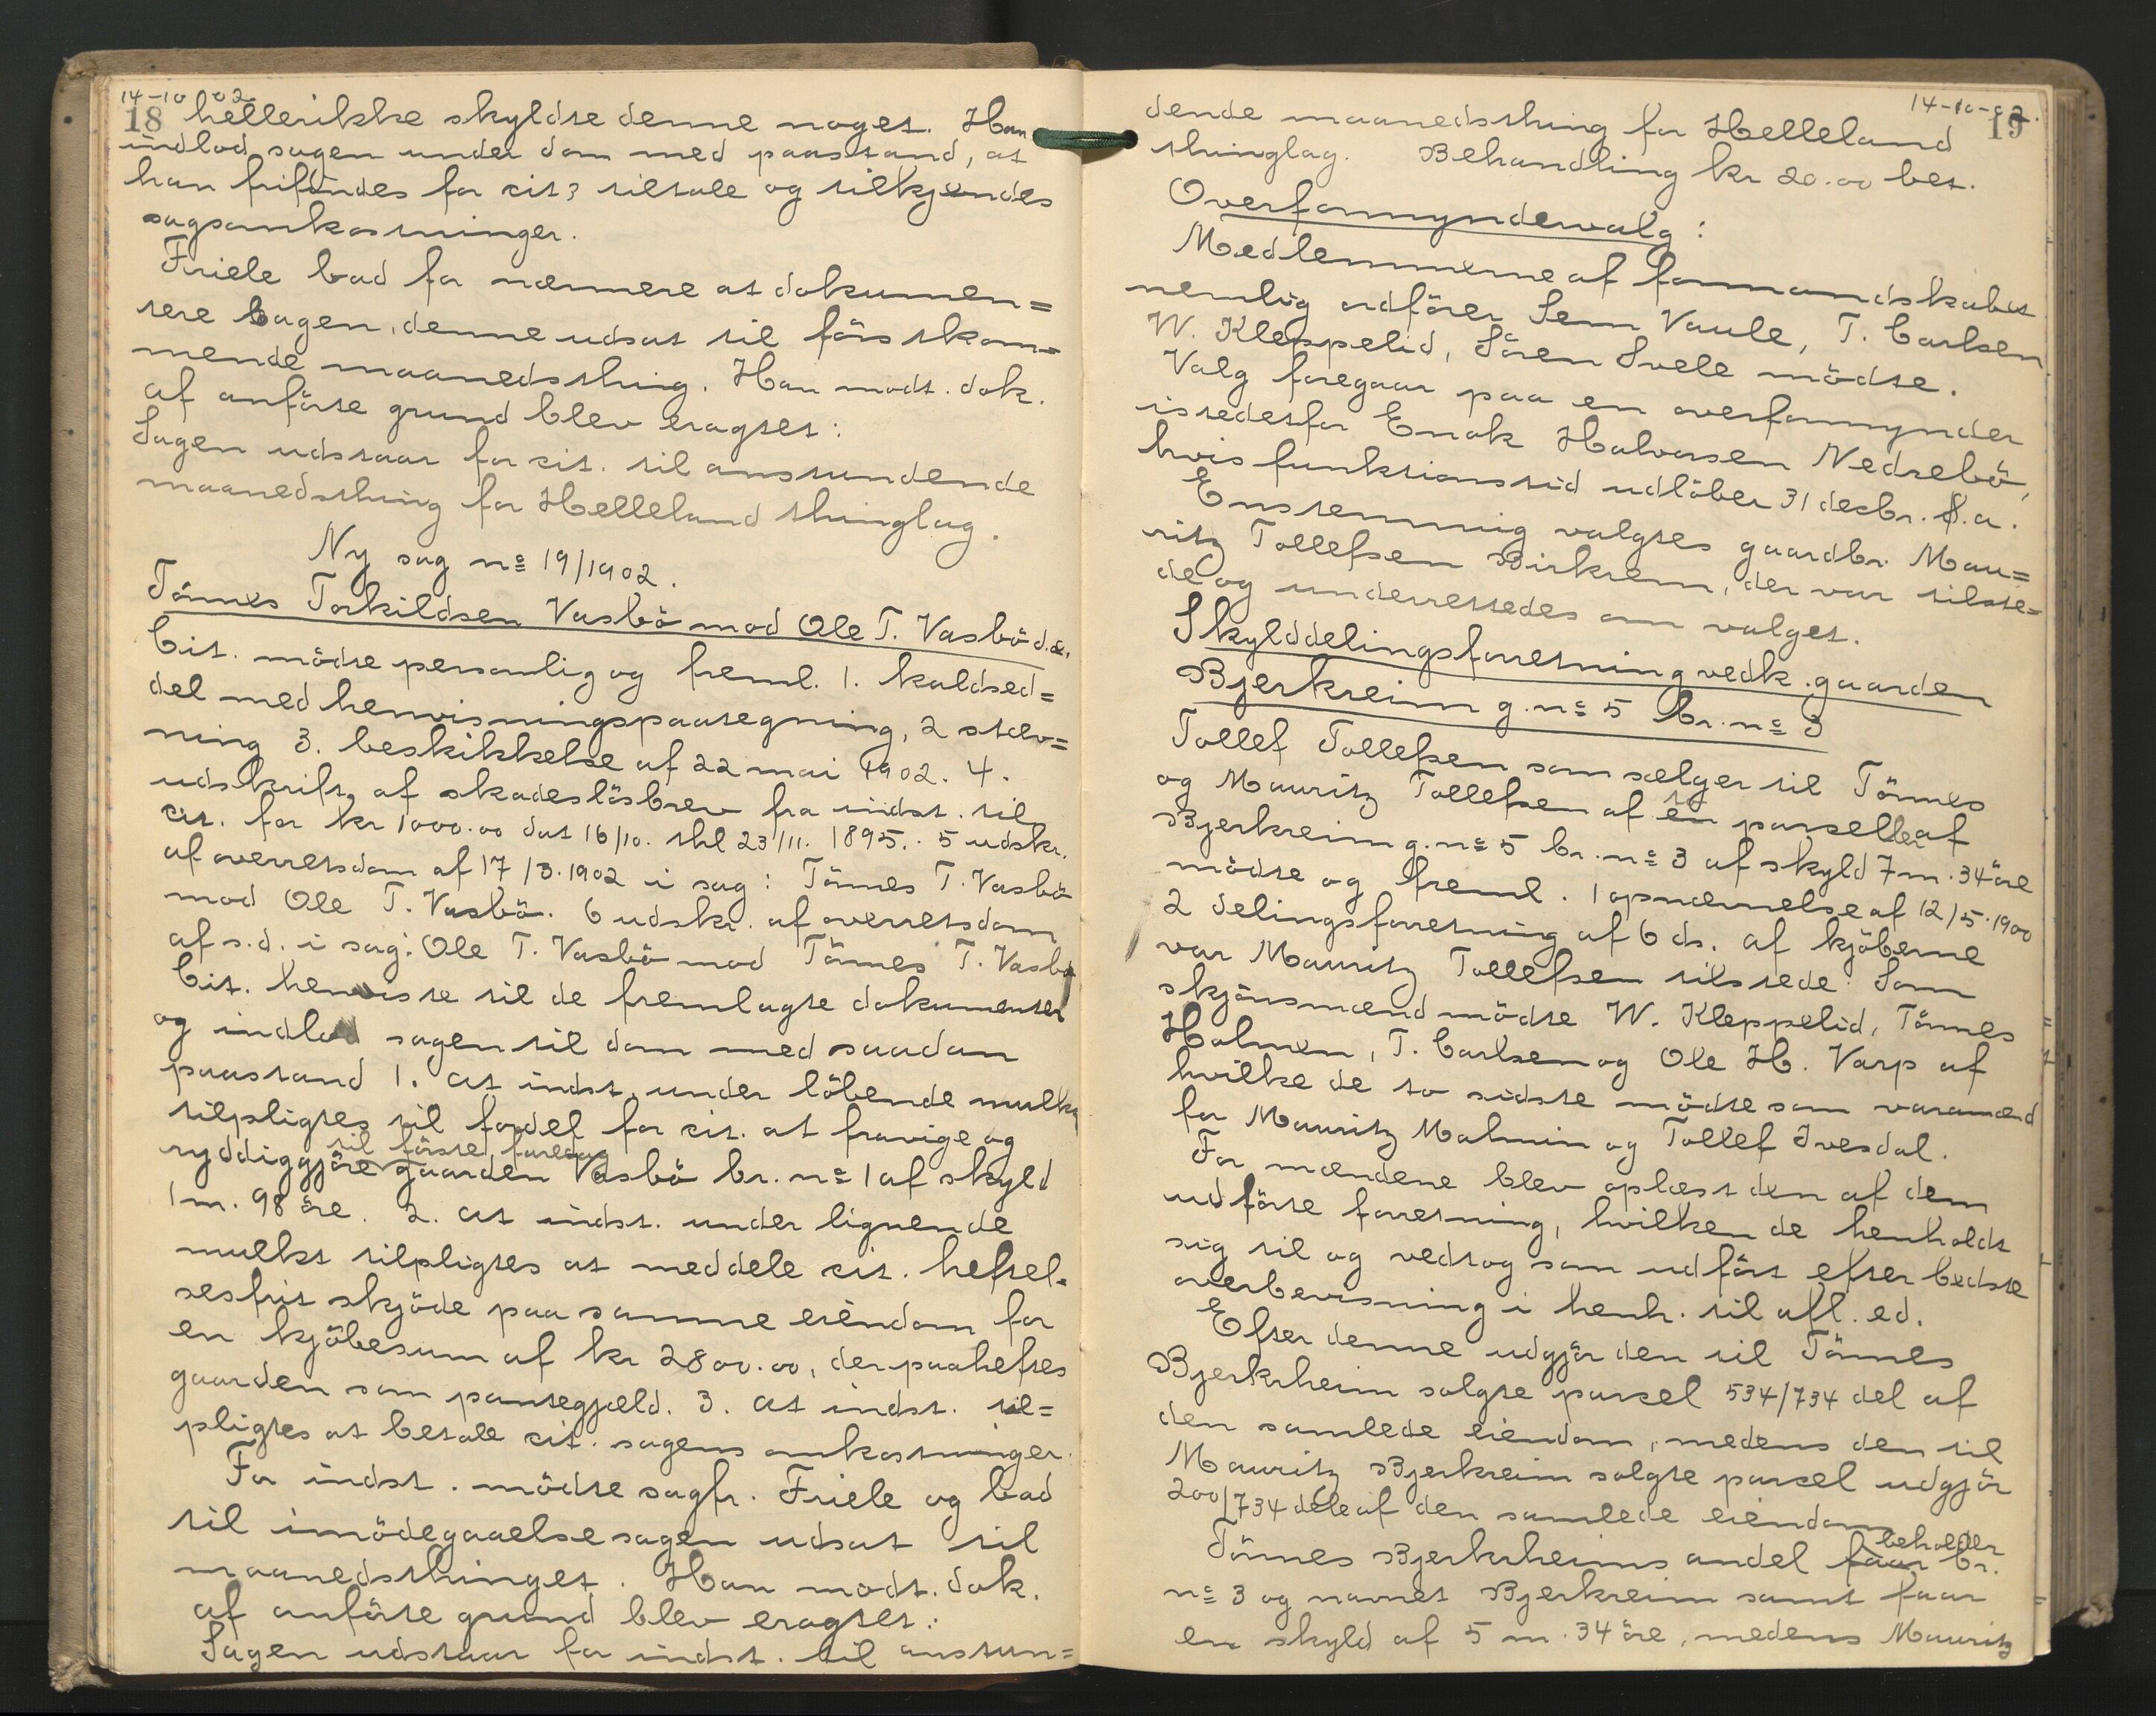 14-10-02
18 hellerikke skyldte denne noget. Han
indlod sagen under dom med paastand, at
han frifindes for cit; tiltale og tilkjendes
sagsomkostninger.
Friele bad for nærmere at dokumen=
tere sagen, denne udsat til førstkom=
mende maanedsthing. Han modt. dok.
af anførte grund blev eragtet:
Sagen udstaar for cit. til anstundende
maanedsthing for Helleland thinglag.
Ny sag no 19/1902.
Tönnes Torkildsen Vasbö mod Ole T. Vasbö d.æ.
Cit. mödte personlig og freml. 1. kaldsed=
del med henvisningspaategning, 2 stæv=
ning 3. beskikkelse af 22 mai 1902. 4.
udskrift af skadeslösbrev fra indst. til
cit. for kr 1000.00 dat 16/10. thl 23/11. 1895. 5 udskr.
af overretsdom af 17/3.1902 i sag: Tönnes T. Vasbö
mod Ole T. Vasbö. 6 udskr. af overretsdom
af s.d. i sag: Ole T. Vasbö mod Tönnes T. Vasbö
Cit. henviste til de fremlagte dokumenter
og indlod sagen til dom med saadan
paastand 1. at indst. under löbende mulkt
tilpligtes til fordel for cit. at fravige og
til förste faredag
ryddiggjöre gaarden Vasbö br. no 1 af skyld
1 m. 98 öre. 2. at indst. under lignende
mulkt tilpligtes at meddele cit. heftel=
sesfrit skjöde paa samme eiendom for
en kjöbesum af kr 2800.00, der paaheftes
gaarden som pantegjæld. 3. at indst. til=
pligtes at betale cit. sagens omkostninger.
For indst. mödte sagfr. Friele og bad
til imödegaaelse sagen udsat til
maanedsthinget. Han modt. dok.
af anförte grund blev eragtet:
Sagen udstaar for indst. til anstun=
14-10-02.
19
dende maanedsthing for Helleland
thinglag. Behandling kr 20.00 bet.
Overformyndervalg:
Medlemmerne af formandskabet
nemlig ordförer Sem Vaule, T. Carlsen
W. Kleppelid, Sören Svele mödte.
Valg foregaar paa en overformynder
istedetfor Enok Halvorsen Nedrebö,
hvis funktionstid udlöber 31 decbr. d.a.
Enstemmig valgtes gaardbr. Mau=
ritz Tollefsen Birkrem, der var tilste=
de og underrettedes om valget.
Skylddelingsforretning vedk. gaarden
Bjerkreim g. no 5 br. no 3
Tollef Tollefsen som sælger til Tönnes
og Mauritz Tollefsen af en to parseller af
Bjerkreim g. no 5 br. no 3 af skyld 7 m. 34 öre
mödte og freml. 1 opnævnelse af 12/5.1900
2 delingsforretning af 6 ds. af kjöberne
var Mauritz Tollefsen tilstede. Som
skjönsmænd mödte W. Kleppelid, Tönnes
Holmen, T. Carlsen og Ole H. Varp af
hvilke de to sidste mödte som varamænd
for Mauritz Malmin og Tollef Ivesdal.
For mændene blev oplæst den af dem
udförte forretning, hvilken de henholdt
sig til og vedtog som udfört efter bedste
overbevisning i henh. til afl. ed.
Efter denne udgjör den til Tönnes
Bjerkrheim solgte parcel 534/734 del af
den samlede eiendom, medens den til
Mauritz Bjerkreim solgte parcel udgjör
200/734 dele af den samlede eiendom.
beholder
Tönnes Bjerkrheims andel faar br.
no 3 og navnet Bjerkreim samt faar
en skyld af 5 m. 34 öre, medens Mauritz